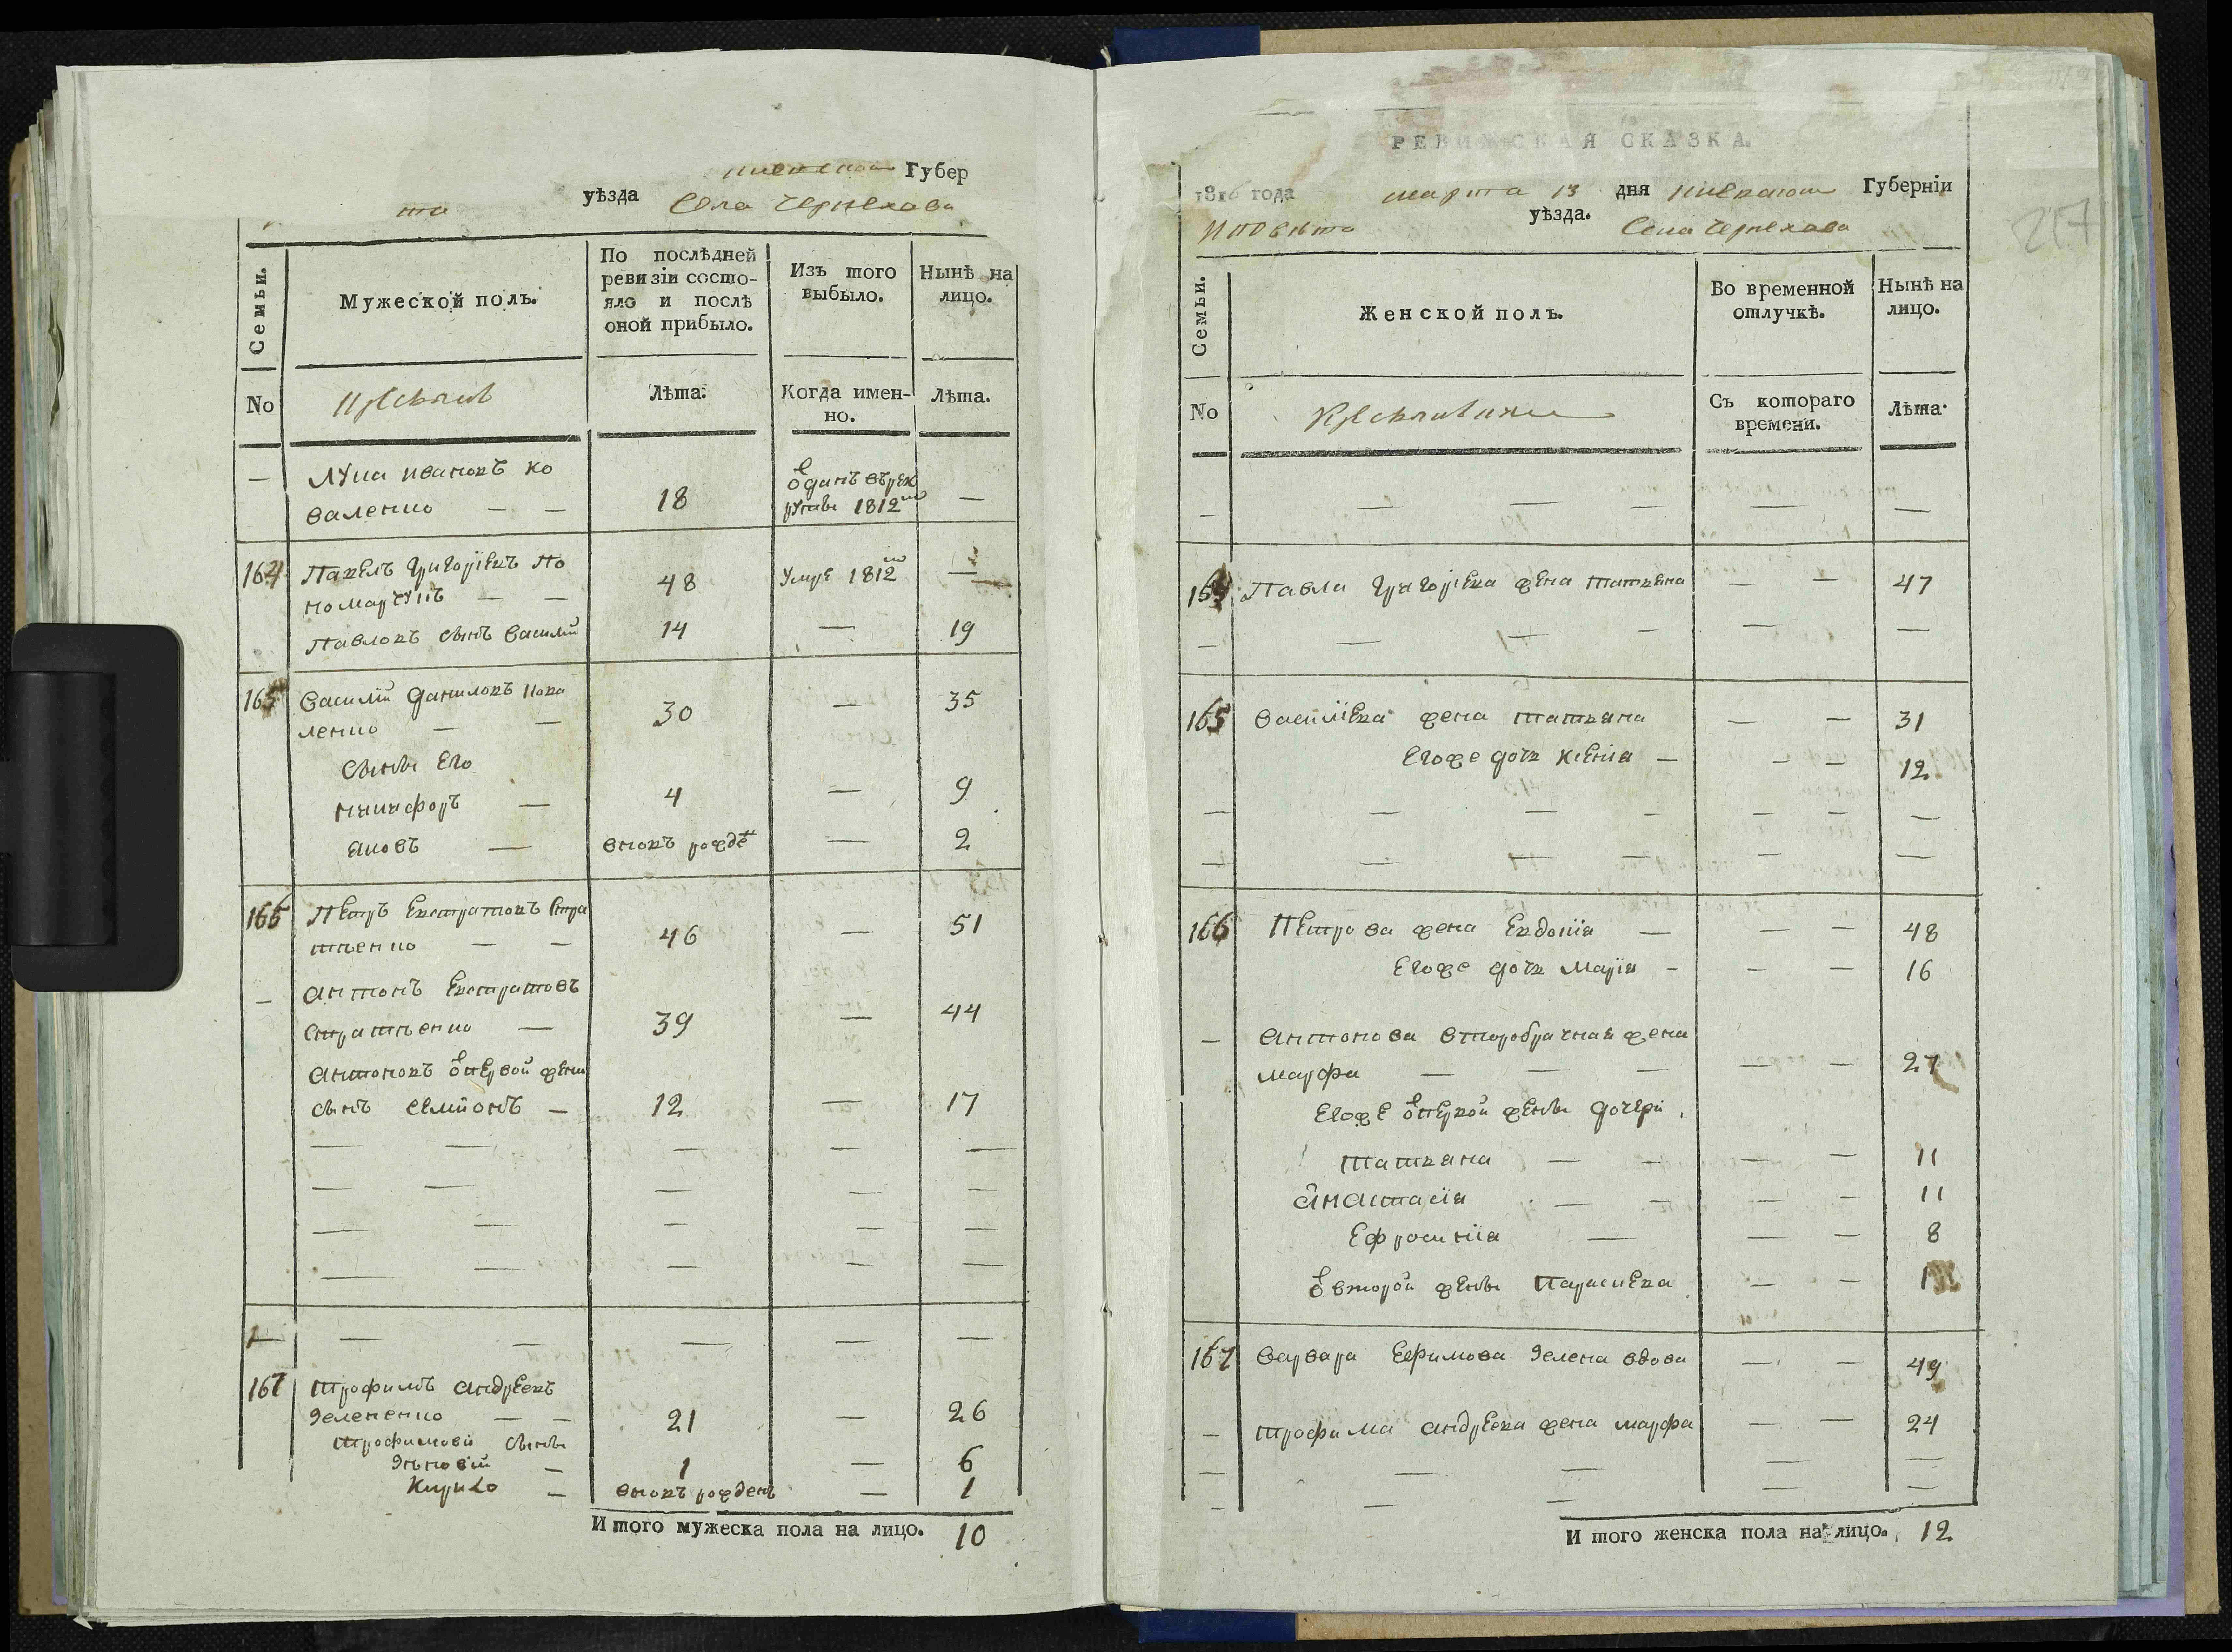 Киевской Губер
та уѣзда Села Чернехова
Семьи.
Мужеской полъ.
По послѣдней ревизіи состо-
яло и послѣ оной прибыло.
Изъ того выбыло.
Нынѣ на лицо.
No
Лѣта.
Когда имен-
но.
Лѣта.
— Лука Ивановъ Ко
валенко — — 18 ѿданъ въ рек
руты 1812го —
164 Павелъ Григоріевъ По
номарчукъ — — 48 Умре 1812го —
Павловъ сынъ Василій 14 — 19
165 Василій Даниловъ Кова
ленко — — 30 — 35
Сыны Его
Никифоръ — 4 — 9
Яковъ — вновь рожде — 2
166 Петръ Евстратовъ Стра
тіенко — — 46 — 51
— Антонъ Евстратовъ
Стратіенко — 39 — 44
Антоновъ ѿ первой жены
сынъ Семіонъ — 12 — 17
167 Трофимъ Андреевъ
Зелененко — — 21 — 26
Трофимовы сыны
Зѣновій — 1 — 6
Кирило — вновь рожденъ — 1
И того мужеска пола на лицо. 10
РЕВИЖСКАЯ СКАЗКА.
1816 года марта 13 дня Киевской Губерніи
Повѣта уѣзда. Села Чернехова
217
Семьи.
Женской полъ.
Во временной отлучкѣ.
Нынѣ на лицо.
No
Съ котораго времени.
Лѣта.
164 Павла Григорьева жена Татьяна — — 47
165 Васильева жена Татьяна — — 31
Егоже дочь Ксенія — — — 12
166 Петрова жена Евдокія — — — 48
Егоже дочь Марія — — — 16
— Антонова второбрачная жена
Марфа — — — — — 27
Егоже ѿ первой жены дочери
Татьяна — — — — 11
Анастасія — — — — 11
Ефросинія — — — 8
ѿ второй жены Параскева — — 1
167 Варвара Ефимова Зелена вдова — — 49
— Трофима Андреева жена Марфа — — 24
И того женска пола на лицо. 12